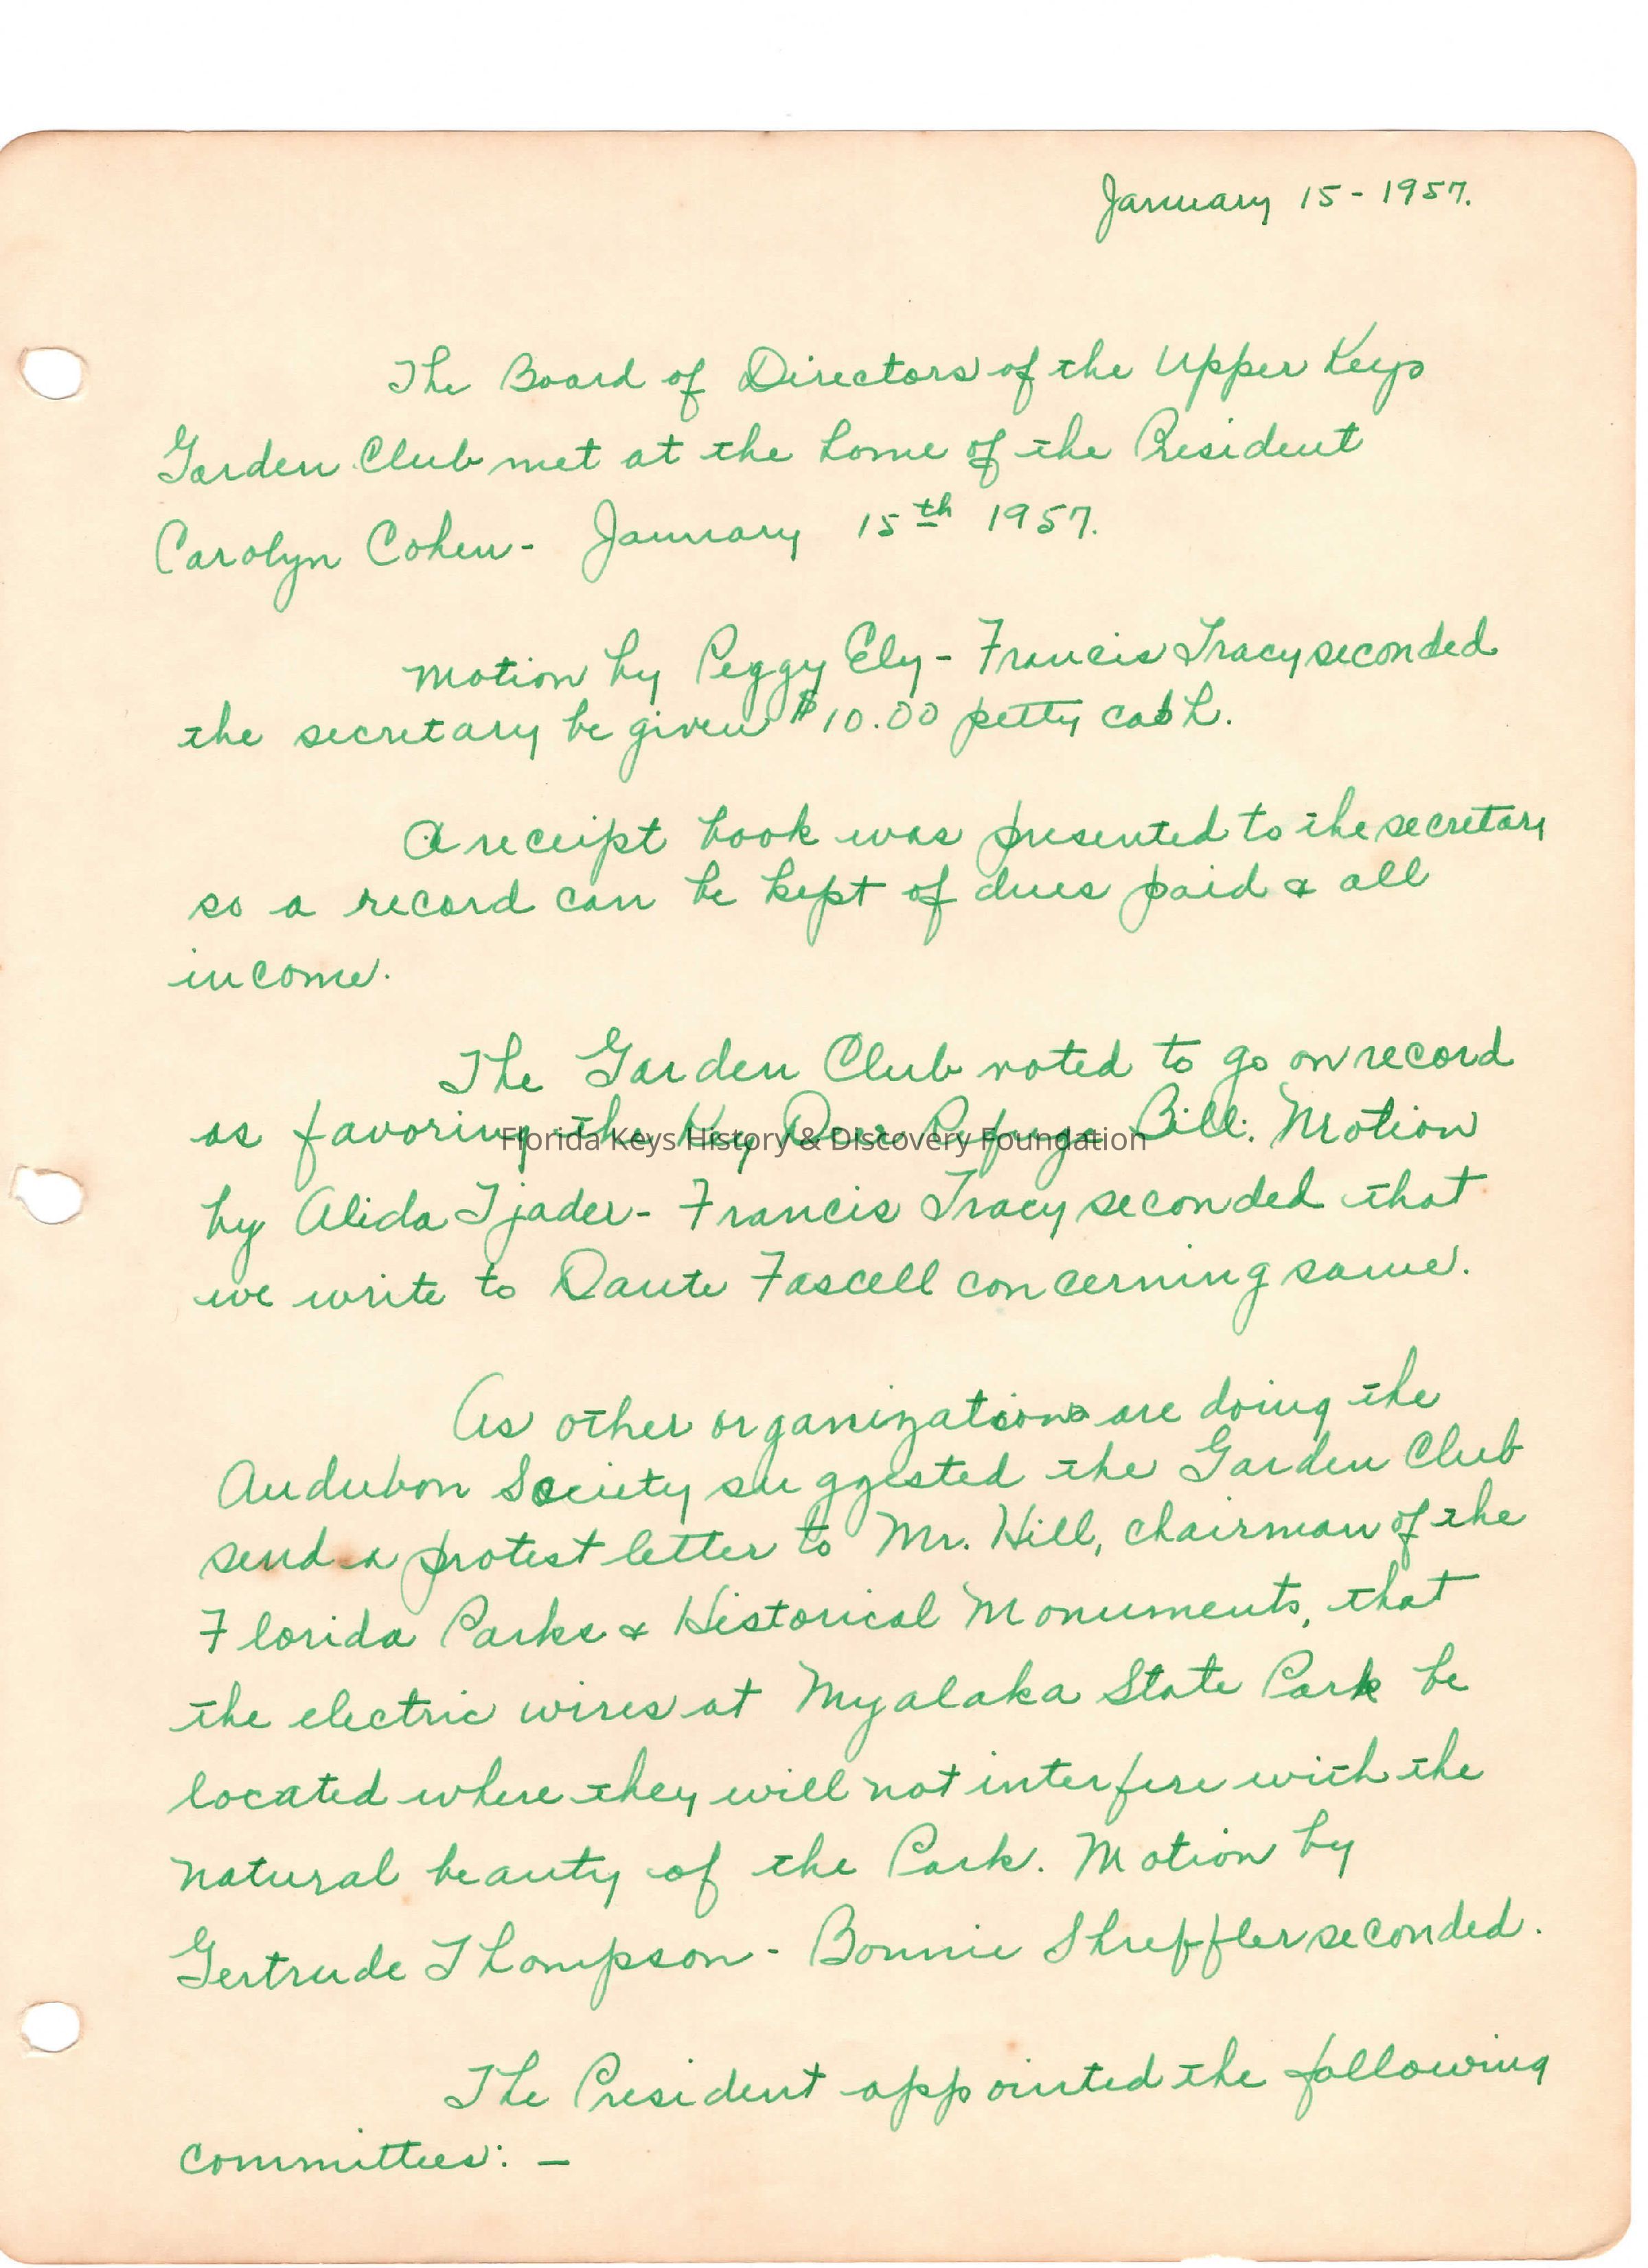 January 15 - 1957.
The Board of Directors of the Upper Keys
Garden Club met at the home of the President
Carolyn Cohen - January 15th 1957.
Motion by Peggy Ely - Francis Tracy seconded
the secretary be given $10.00 petty cash.
A receipt book was presented to the secretary
so a record can be kept of dues paid & all
income.
The Garden Club voted to go on record
as favoring the Key Deer Refuge Bill. Motion
Florida Keys History & Discovery Foundation
by Alida Tjader - Francis Tracy seconded that
we write to Dante Fascell concerning same.
As other organizations are doing the
Audubon Society suggested the Garden Club
send a protest letter to Mr. Hill, chairman of the
Florida Parks & Historical Monuments, that
the electric wires at Myalaka State Park be
located where they will not interfere with the
natural beauty of the Park. Motion by
Gertrude Thompson - Bonnie Shreffler seconded.
The President appointed the following
committees: -